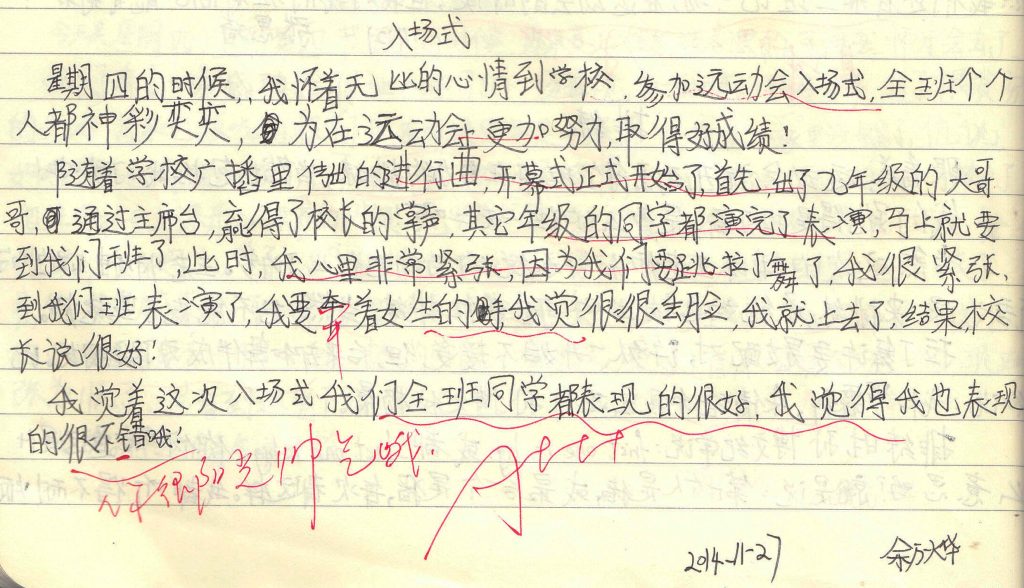 入场式
星期四的时候,我怀着无比的心情到学校,参加远动会入场式,全班个个
人都神彩奕奕,为在远动会上更加努力,取得好成绩!
随着学校广播里传出的进行曲,开幕式正式开始了,首先,出了九年级的大哥
哥,通过主席台,赢得了校长的掌声,其它年级的同学都演完了表演,马上就要
到我们班了,此时,我心里非常紧张,因为我们要跳拉丁舞了,我很紧张,
到我们班表演了,我要牵着女生的我觉很很丢脸,我就上去了,结果,校
长说很好!
我觉着这次入场式我们全班同学都表现的很好,我觉得我也表现
的很不错哦!
帅气哦!
A+++
2014-11-27